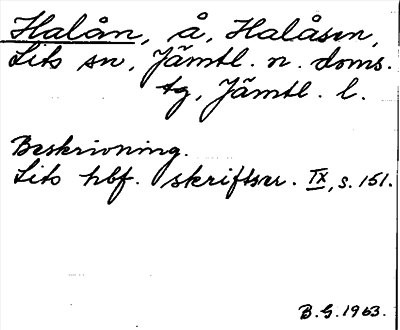 Halån, å, Halåsen,
Lits sn, Jämtl. n. doms.
tg, Jämtl. l.
Beskrivning.
Lits hbf. skriftser. IX, s. 151.
B.G. 1963.